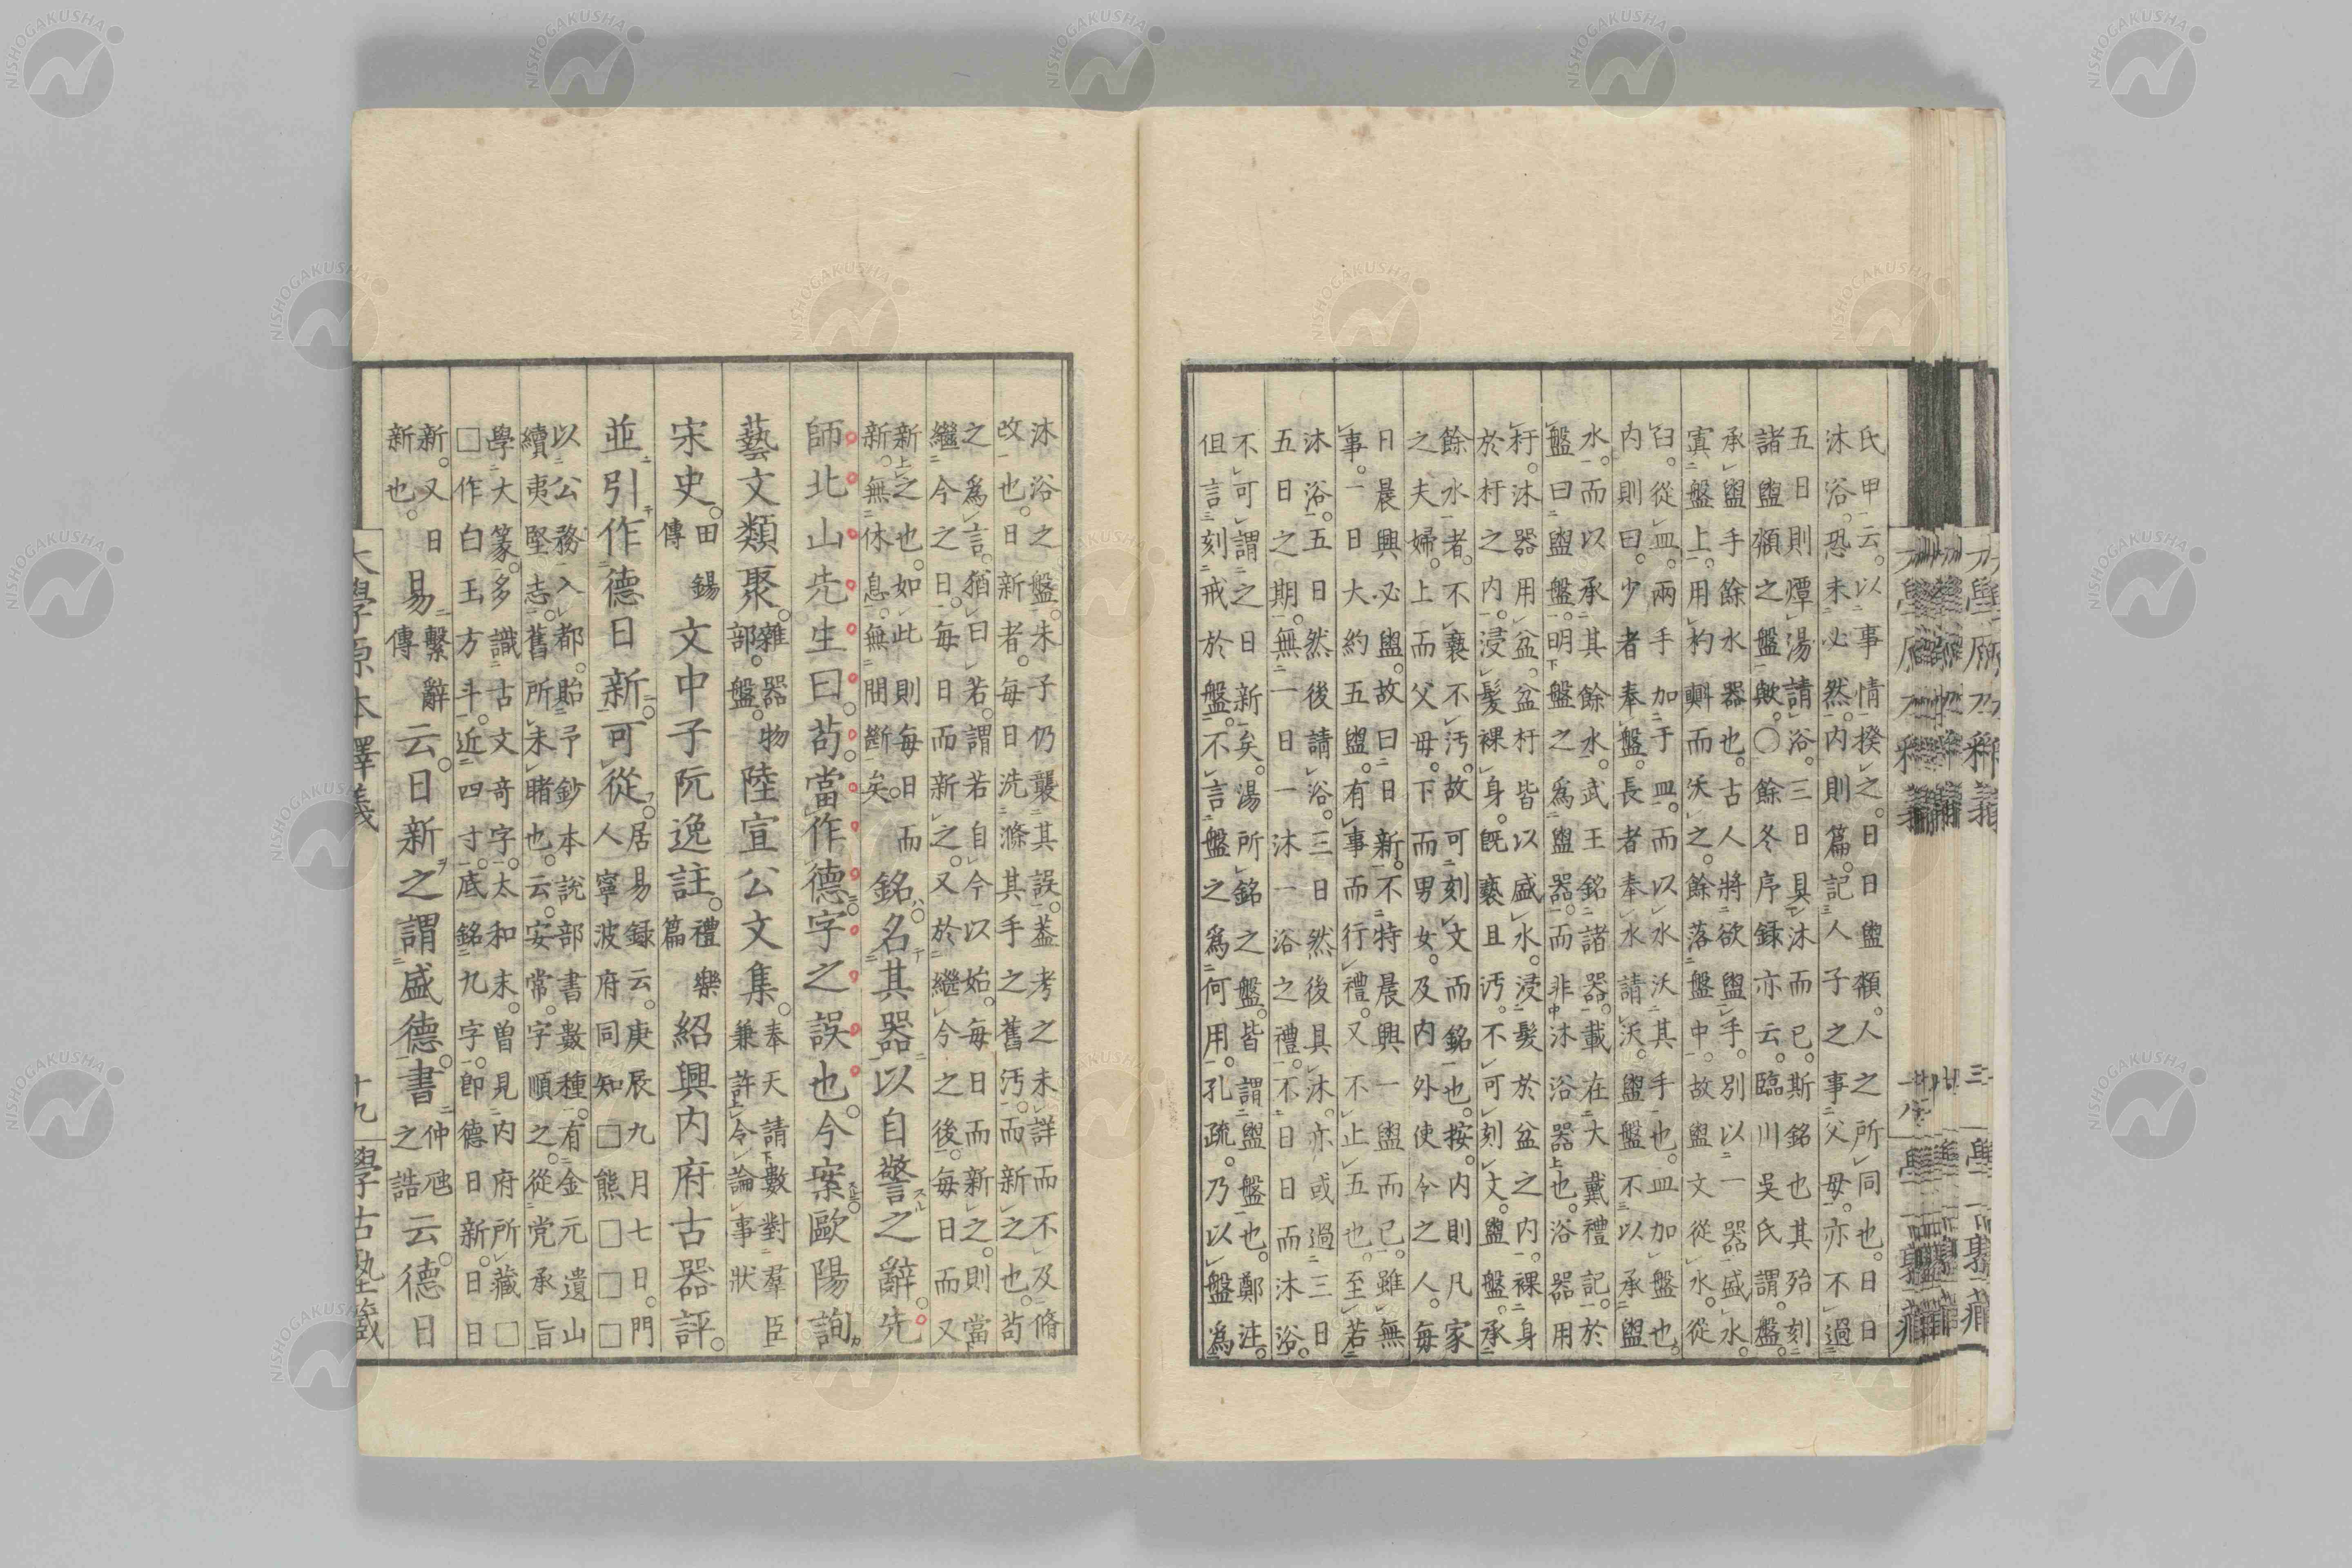 氏甲云以事情揆之日日盥頮人之所同也日日
沐浴恐未必然内則篇記人子之事父母亦不過
五日則燂湯請浴三日具沐而已斯銘也其殆刻
諸盥頮之盤歟〇餘冬序録亦云臨川吳氏謂盤
承盥手餘水器也古人將欲盥手別以一器盛水
寘盤上用杓𣂏而沃之餘落盤中故盥文從水從
臼從皿兩手加于皿而以水沃其手也皿加盤也
内則曰少者奉盤長者奉水請沃盥盤不以承盥
水而以承其餘水武王銘諸器載在大戴禮記於
盤曰盥盤明盤之為盥器而非沐浴器也浴器用
杅沐器用盆盆杅皆以盛水浸髮於盆之内裸身
於杅之内浸髮裸身既褻且汚不可刻文盥盤承
餘水者不褻不汚故可刻文而銘也按内則凡家
之夫婦上而父母下而男女及内外使令之人每
日晨興必盥故曰日新不特晨興一盥而已雖無
事一日大約五盥有事而行禮又不止五也至若
沐浴五日然後請浴三日然後具沐亦或過三日
五日之期無一日一沐一浴之禮不日日而沐浴
不可謂之日新矣湯所銘之盤皆謂盥盤也鄭注
但言刻戒於盤不言盤之為何用孔疏乃以盤為
沐浴之盤朱子仍襲其誤蓋考之未詳而不及脩
改也日新者每日洗滌其手之舊汚而新之也苟
之為言猶曰若謂若自今以始每日而新之則當
繼今之日每日而新之又於繼今之後每日而又
新之也如此則每日而
新無休息無間斷矣
銘名其器以自警之辭先
師北山先生曰苟當作德字之誤也今案歐陽詢
藝文類聚雜器物
部盤
陸宣公文集奉天請數對羣臣
兼許令論事狀
宋史田錫
傳
文中子阮逸註禮樂
篇
紹興内府古器評
並引作德日新可從居易録云庚辰九月七日門
人寧波府同知□熊□□
以公務入都貽予鈔本説部書數種有金元遺山
續夷堅志舊所未睹也云安常字順之從党承旨
學大篆多識古文奇字太和末曽見内府所藏□
□作白玉方斗近四寸底銘九字即德日新日日
新又日
新也
易繫辭
傳
云日新之謂盛德書仲虺
之誥
云德日
大學原本釋義
十九
學古塾藏